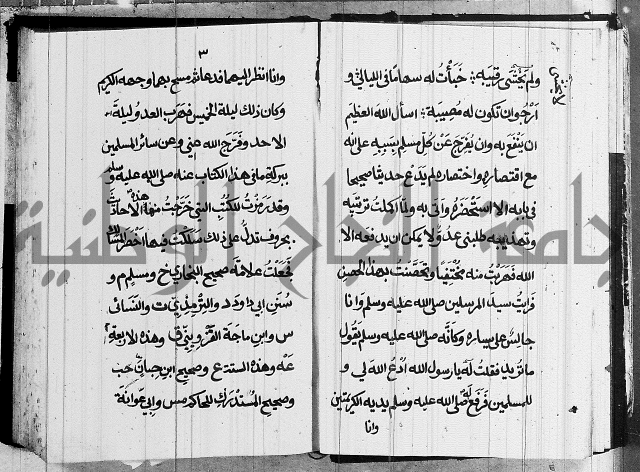 ولم يخشى رقيبه خبأت له سهاما في الليالي و
ارجو ان تكون له مصيبة اسأل الله العظيم
ان ينفع به وان يفرج عن كل مسلم بسببه على انه
مع اقتصاره واختصاره لم يدع حديثا صحيحا
في بابه الا استحضره واتى به ولما اكملت ترتيبه
وتهذيبه طلبني عدو لا يمكن ان يدفعه الا
الله فهربت منه مختفيا وتحصنت بهذا الحصن
فرايت سيد المرسلين صلى الله عليه وسلم وانا
جالس على يساره وكانه صلى الله عليه وسلم يقول
ما تريد فقلت له يارسول الله ادع الله لي و
للمسلمين فرفع صلى الله عليه وسلم يديه الكريمتين
وانا
٣
وانا انظر اليهما فدعا ثم مسح بهما وجهه الكريم
وكان ذلك ليلة الخميس فهرب العدو ليلة
الاحد وفرج الله عني وعن سائر المسلمين
ببركة ما في هذا الكتاب عنه صلى الله عليه وسلم
وقد رمزت للكتب التي خرجت منها هذه الاحاديث
بحروف تدل على ذلك سلكت فيها اخصر المسالك
فجعلت علامة صحيح البخاري خ ومسلم م و
سنن ابي داود د والترمذي ت والنسائي
س وابن ماجة القزويني ق وهذه الاربعة
عه وهذه الستة ع وصحيح ابن حبان حب
وصحيح المستدرك للحاكم مس وابي عوانة
جامعة النجاح الوطنية